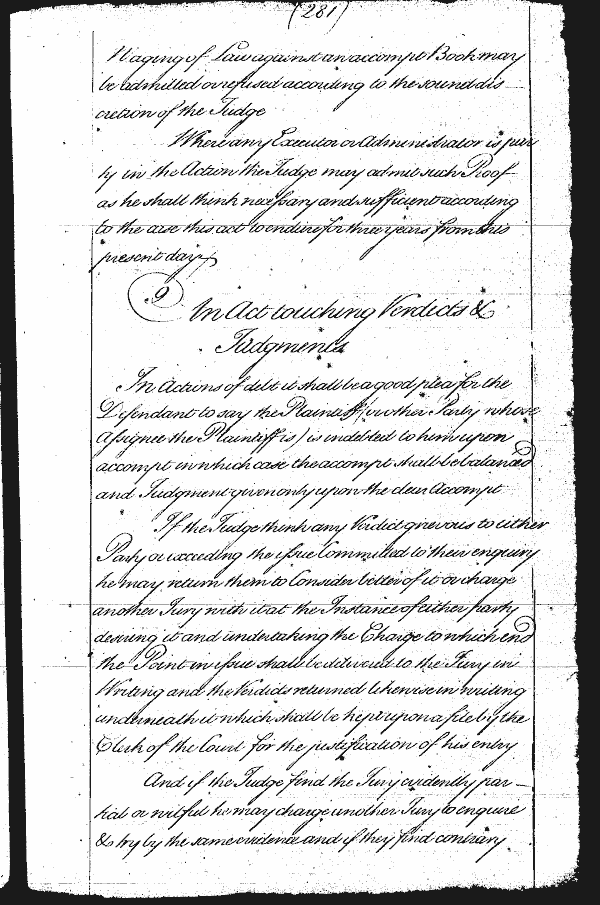 (281)
Waging of Law against an accompt Book may
be admitted or refused according to the sound dis
cretion of the Judge
Where any Executor or Administrator is par
ty in the Action the Judge may admit such Proof
as he shall think necessary and sufficient according
to the case this act to endure for three years from this
present day
9 An Act touching Verdicts &
Judgments
In Actions of debt it shall be a good plea for the
Defendant to say the Plaintiff (or other Party whose
Assignee the Plaintiff is) is indebted to him upon
accompt in which case the accompt shall be balanced
and Judgment given only upon the clear Accompt
If the Judge think any Verdict grievous to either
Party or exceeding the issue Committed to their enquiry
he may return them to Consider better of it or charge
another Jury with it at the Instance of either party
desiring it and undertaking the Charge to which end
the Point in issue shall be delivered to the Jury in
Writing and the Verdicts returned likewise in writing
underneath it which shall be kept upon a file by the
Clerk of the Court for the justification of his entry
And if the Judge find the Jury evidently par-
tial or wilful he may charge another Jury to enquire
& try by the same evidence and if they find contrary